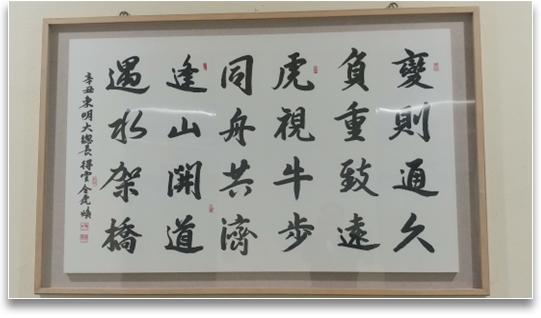 變則通久
負重致遠
虎視牛步
同舟共濟
逢山開道
遇水架橋
辛丑東明大總長得雲金